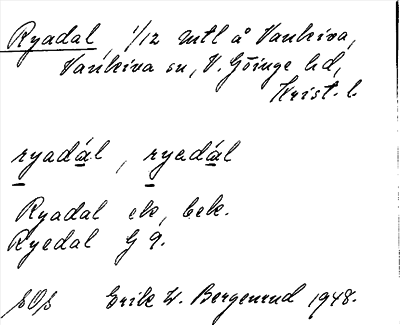 Ryadal, 1/12 mtl å Vankiva,
Vankiva sn, V. Göinge hd,
Krist. l.
ryadál, ryedál
Ryadal ek, bek.
Ryedal G 9.
Erik W. Bergenrud 1948.